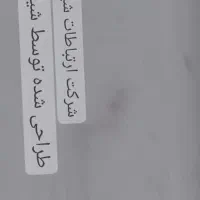 شرکت ارتباطات
طراحی شده توسط